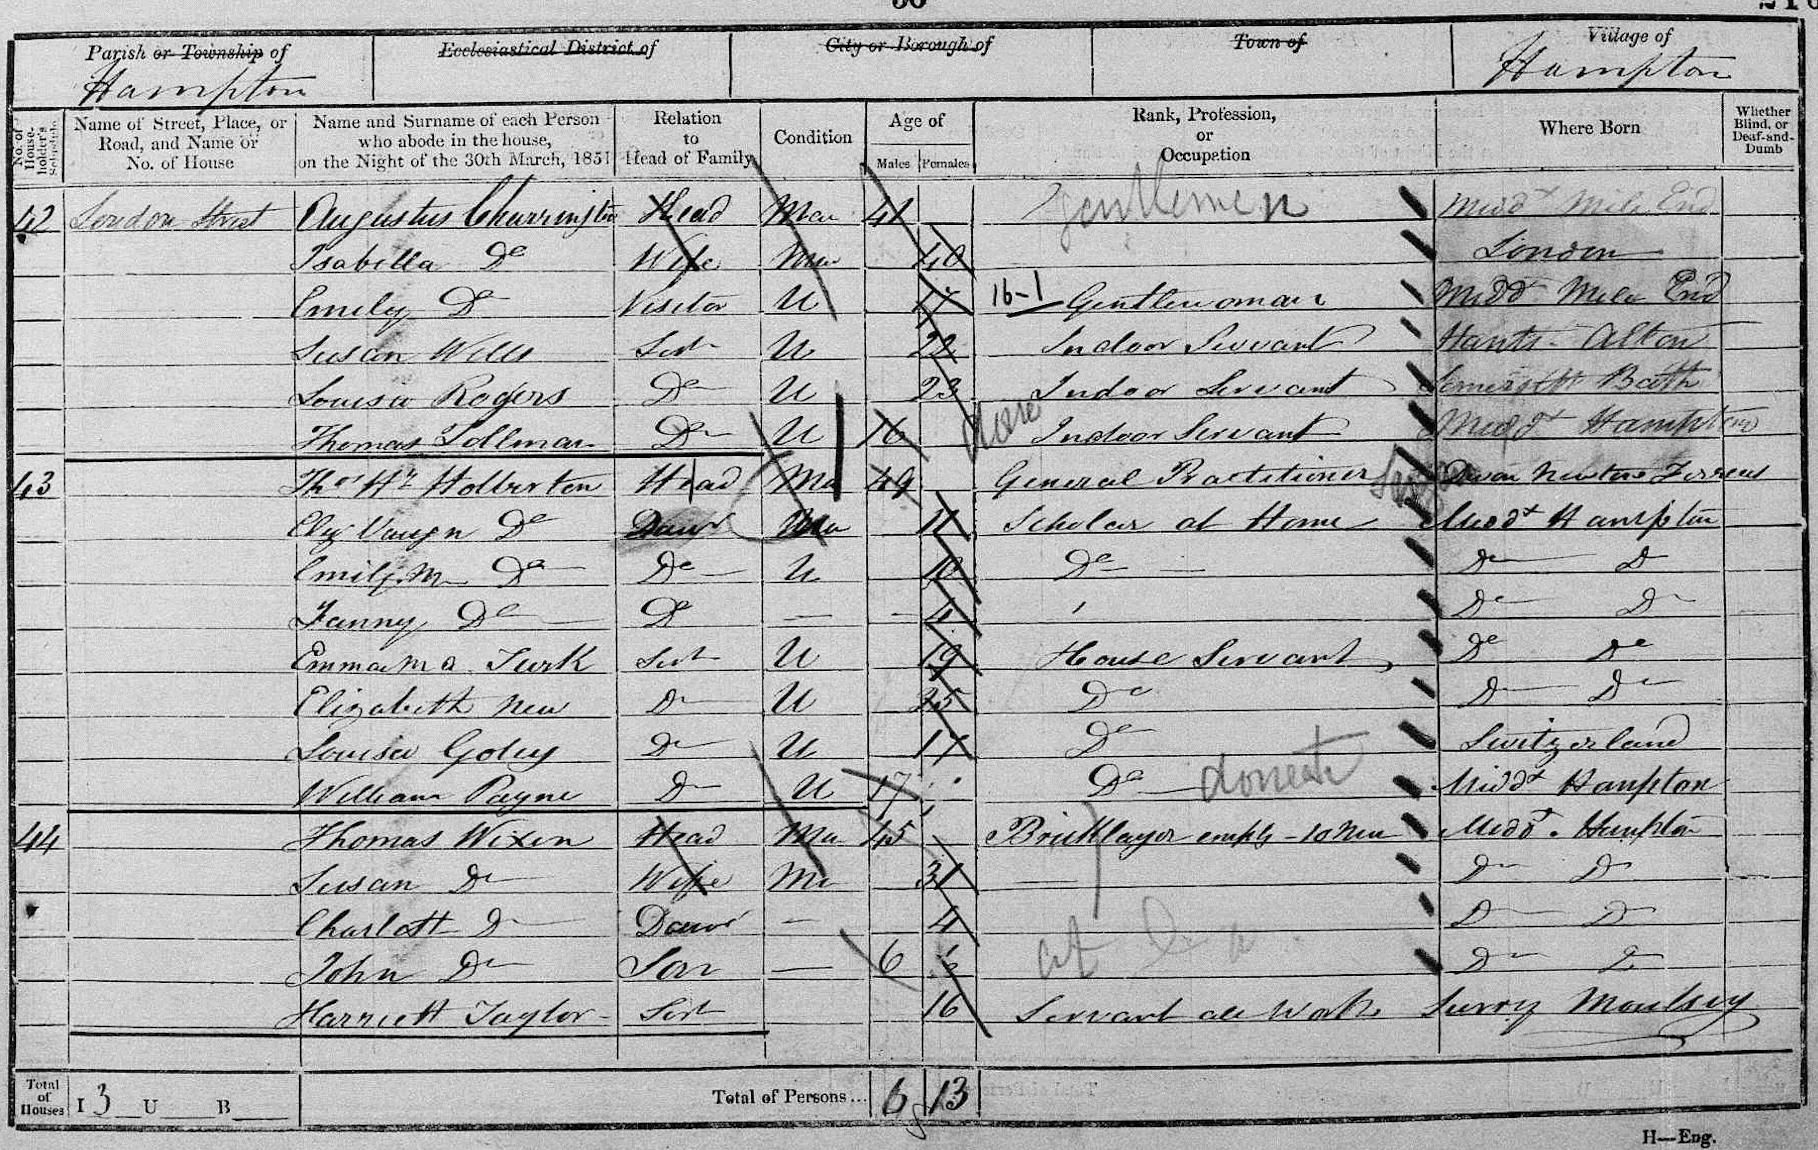 Parish or Township of
Ecclesiastical District of
City or Borough of
Town of
Village of
Hampton
Hampton
No. of House-holder's Schedule
Name of Street, Place, or Road, and Name or No. of House
Name and Surname of each Person who abode in the house, on the Night of the 30th March, 1851
Relation to Head of Family
Condition
Age of
Males Females
Rank, Profession, or Occupation
Where Born
Whether Blind, or Deaf-and-Dumb
42 London Street Augustus Charrington Head Mar 41 gentleman Middx Mile End
Isabella Do Wife Mar 40 London
Emily Do Visitor U 17 16-1 Gentlewoman Middx Mile End
Susan Wells Servt U 22 Indoor Servant Hants Alton
Louisa Rogers Do U 23 Indoor Servant Somerset Bath
Thomas Tollman Do U 16 Indoor Servant Middx Hampton
43 Thos Hy Holberton Head Ma 49 General Practitioner Devon Newton Ferrers
Do Daur 11 Scholar at Home Middx Hampton
Emily M Do Do U 10 Do Do Do
Fanny Do Do 4 Do Do
Emma Ma Turk Servt U 19 House Servant Do Do
Elizabeth New Do U 25 Do Do Do
Louisa Do U 17 Do Switzerland
William Payne Do U 17 Do Middx Hampton
44 Thomas Wixen Head Ma 45 Bricklayer emply 10 Men Middx Hampton
Susan Do Wife Ma 31 Do Do
Charlott Do Daur 4 Do Do
John Do Son 6 Do Do
Harriett Taylor Servt 16 Servant all Work Surry Moulsey
Total of Houses I 3 U B
Total of Persons... 6 13
H—Eng.